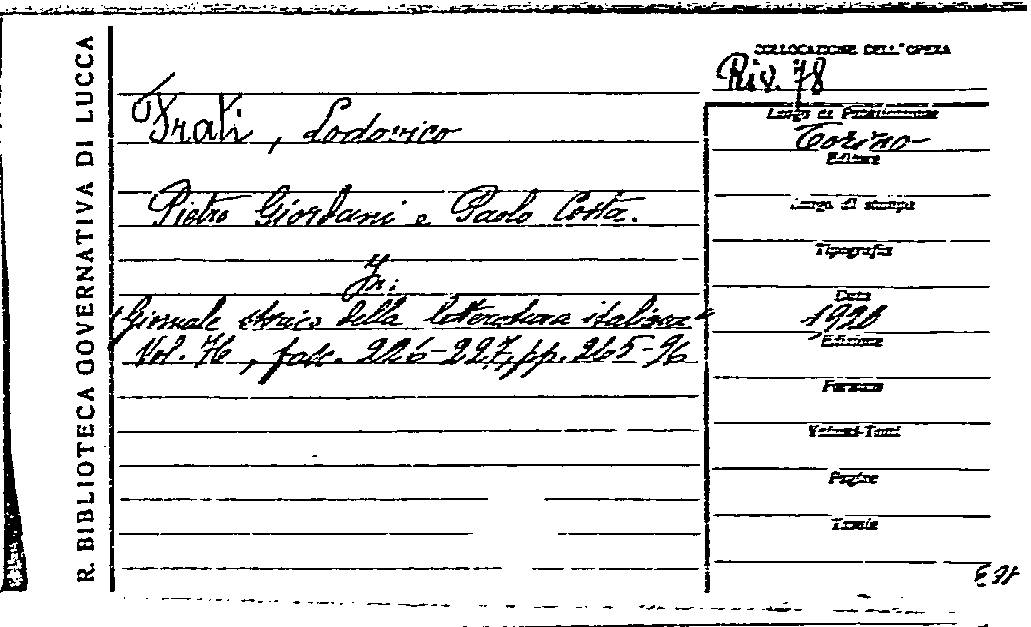 R. BIBLIOTECA GOVERNATIVA DI LUCCA
COLLOCAZIONE DELL'OPERA
Riv. 78
Frati, Lodovico
Pietro Giordani e Paolo Costa.
In:
"Giornale storico della letteratura italiana"
Vol. 76, fasc. 226-227, pp. 265-96
Luogo di Pubblicazione
Torino
Editore
Luogo di stampa
Tipografia
Data
1920
Edizione
Formato
Volumi-Tomi
Pagine
Tavole